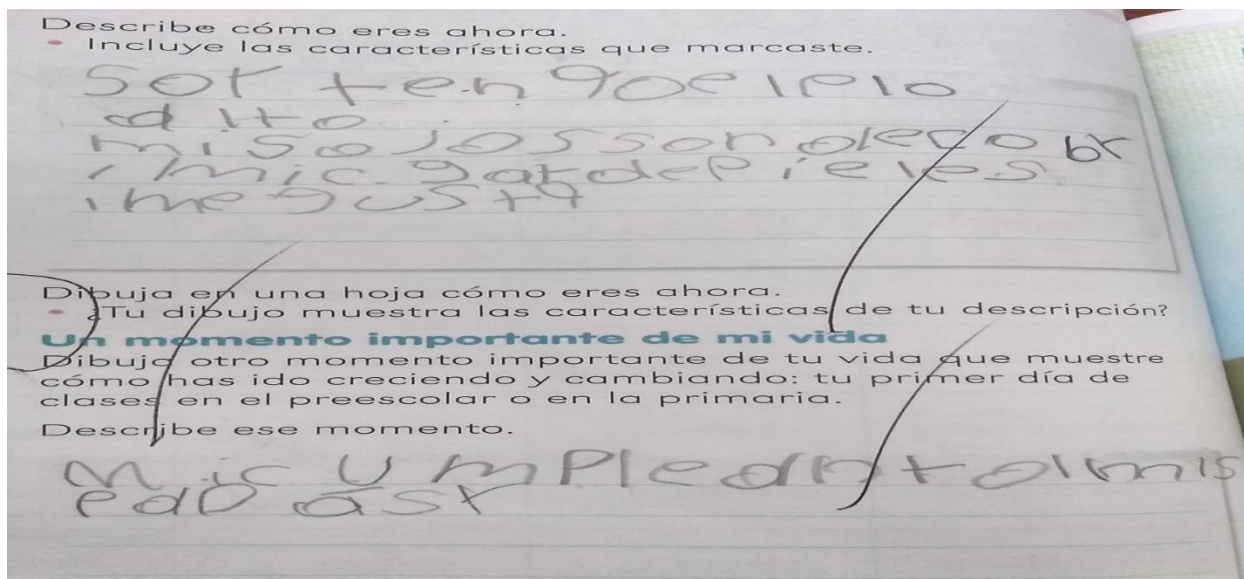 Describe cómo eres ahora.
Incluye las características que marcaste.
Sor ten goelplo
alto
misojossonoleco br
i mic. gatdepieles
imegusta
Dibuja en una hoja cómo eres ahora.
¿Tu dibujo muestra las características de tu descripción?
Un momento importante de mi vida
Dibuja otro momento importante de tu vida que muestre
cómo has ido creciendo y cambiando: tu primer día de
clases en el preescolar o en la primaria.
Describe ese momento.
Micumple